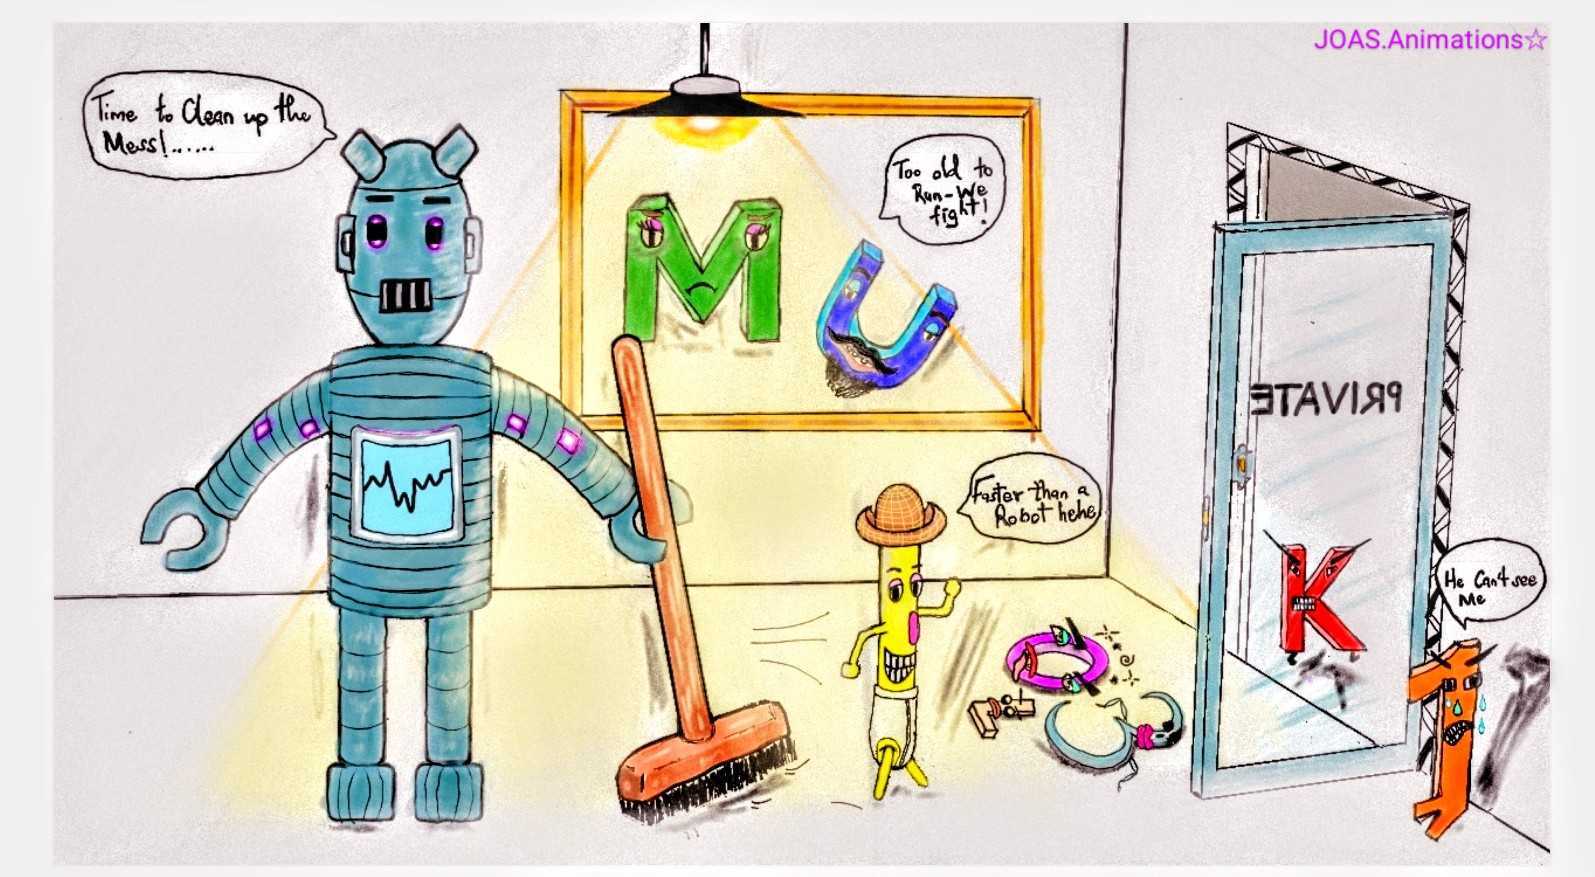 JOAS.Animations☆
Time to Clean up the
Mess!......
Too old to
Run-We
fight!
M
U
PRIVATE
Faster than a
Robot hehe
K
He Can't see
Me